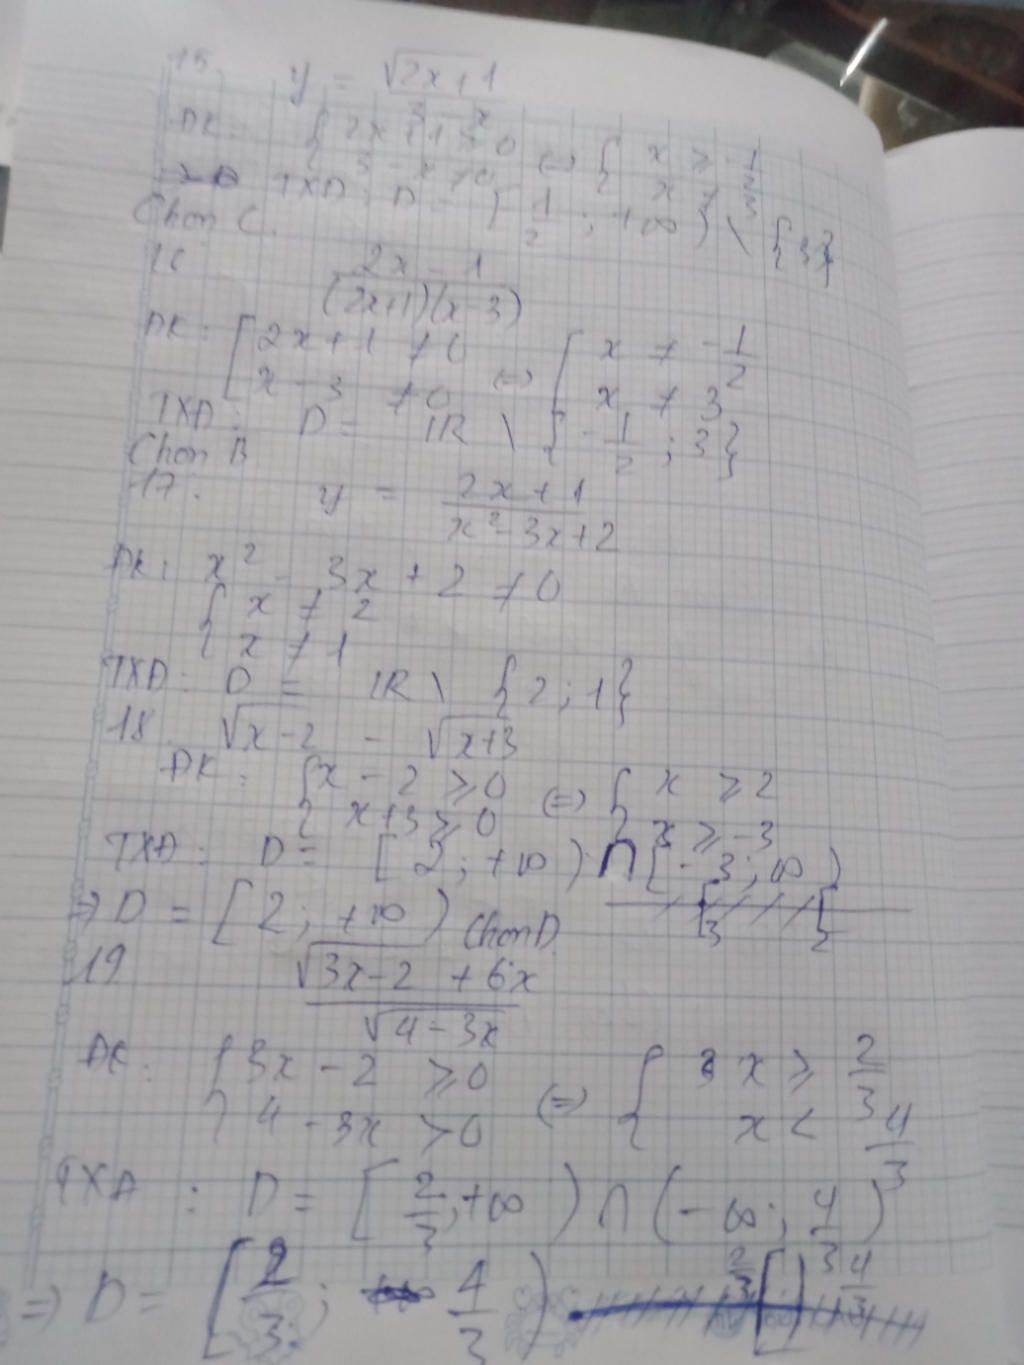 15. y = √(2x+1) / (3 - x)
ĐK: { 2x + 1 ≥ 0 ⇔ { x ≥ -1/2
3 - x ≠ 0 x ≠ 3
TXĐ: D = [-1/2; +∞) \ {3}
Chọn C.
16 (2x - 1) / ((2x+1)(x-3))
ĐK: [ 2x+1 ≠ 0 ⇔ [ x ≠ -1/2
x - 3 ≠ 0 x ≠ 3
TXĐ: D = IR \ {-1/2; 3}
Chọn B
17. y = (2x + 1) / (x² - 3x + 2)
ĐK: x² - 3x + 2 ≠ 0
{ x ≠ 2
x ≠ 1
TXĐ: D = IR \ {2; 1}
18. √(x-2) - √(x+3)
ĐK: { x - 2 ≥ 0 ⇔ { x ≥ 2
x+3 ≥ 0 x ≥ -3
TXĐ: D = [2; +∞) ∩ [-3; ∞)
⇒ D = [2; +∞) Chọn D
3 2
19 (√(3x-2) + 6x) / √(4-3x)
ĐK: { 3x - 2 ≥ 0 ⇔ { x ≥ 2/3
4 - 3x > 0 x < 4/3
TXĐ: D = [2/3; +∞) ∩ (-∞; 4/3)
⇒ D = [2/3; 4/3) 2/3 4/3